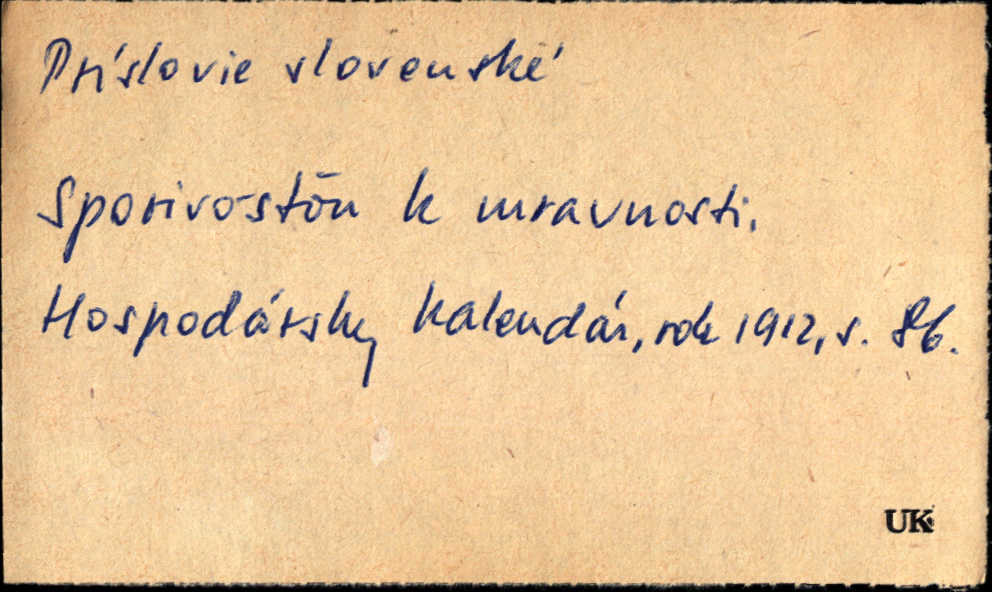 Príslovie slovenské
Sporivosťou k mravnosti.
Hospodársky kalendár, rok 1912, s. 86.
UK